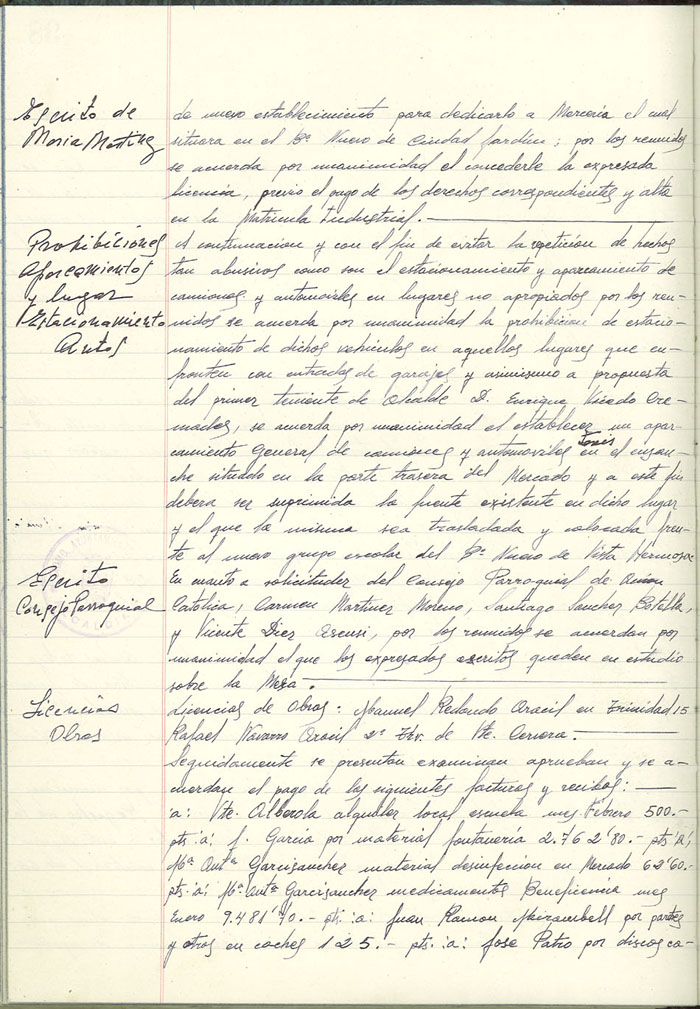 Escrito de
Maria Martinez
de nuevo establecimiento para dedicarlo a Merceria el cual
situara en el Bº Nuevo de Ciudad Jardin; por los reunidos
se acuerda por unanimidad el concederle la expresada
licencia, previo el pago de los derechos correspondientes y alta
en la Matricula Industrial.
Prohibiciones
Aparcamientos
y lugar
Estacionamiento
Autos
A continuacion y con el fin de evitar la repeticion de hechos
tan abusivos como son el estacionamiento y aparcamiento de
camiones y automoviles en lugares no apropiados por los reu-
nidos se acuerda por unanimidad la prohibicion de estacio-
namiento de dichos vehiculos en aquellos lugares que en-
fronten con entradas de garajes y asimismo a propuesta
del primer teniente de Alcalde D. Enrique Vicedo Cre-
mades, se acuerda por unanimidad el establecer un apar-
camiento General de camiones y automoviles en el ensan-
che situado en la parte trasera del Mercado y a este fin
debera ser suprimida la fuente existente en dicho lugar
y el que la misma sea trasladada y colocada fren-
te al nuevo grupo escolar del Bº Nuevo de Vista Hermosa
Escrito
Consejo Parroquial
En cuanto a solicitudes del Consejo Parroquial de Accion
Catolica, Carmen Martinez Moreno, Santiago Sanchez Botella,
y Vicente Diez Asensi, por los reunidos se acuerdan por
unanimidad el que los expresados escritos queden en estudio
sobre la Mesa.
Licencias
Obras
Licencias de Obras: Manuel Redondo Aracil en Trinidad 15
Rafael Navarro Aracil 2ª de Vte. Cervera.
Seguidamente se presentan examinan aprueban y se a-
cuerdan el pago de los siguientes facturas y recibos:
:a: Vte. Alberola alquiler local escuela mes Febrero 500.-
pts :a: J. Garcia por material fontaneria 2.762'80.- pts :a:
Mª Antª Garcisanchez material desinfecion en Mercado 62'60.-
pts. :a: Mª Antª Garcisanchez medicamentos Beneficencia mes
Enero 9.481'70.- pts. :a: Juan Ramon Mirambell por portes
y otros en coches 125.- pts. :a: Jose Patro por discos ca-